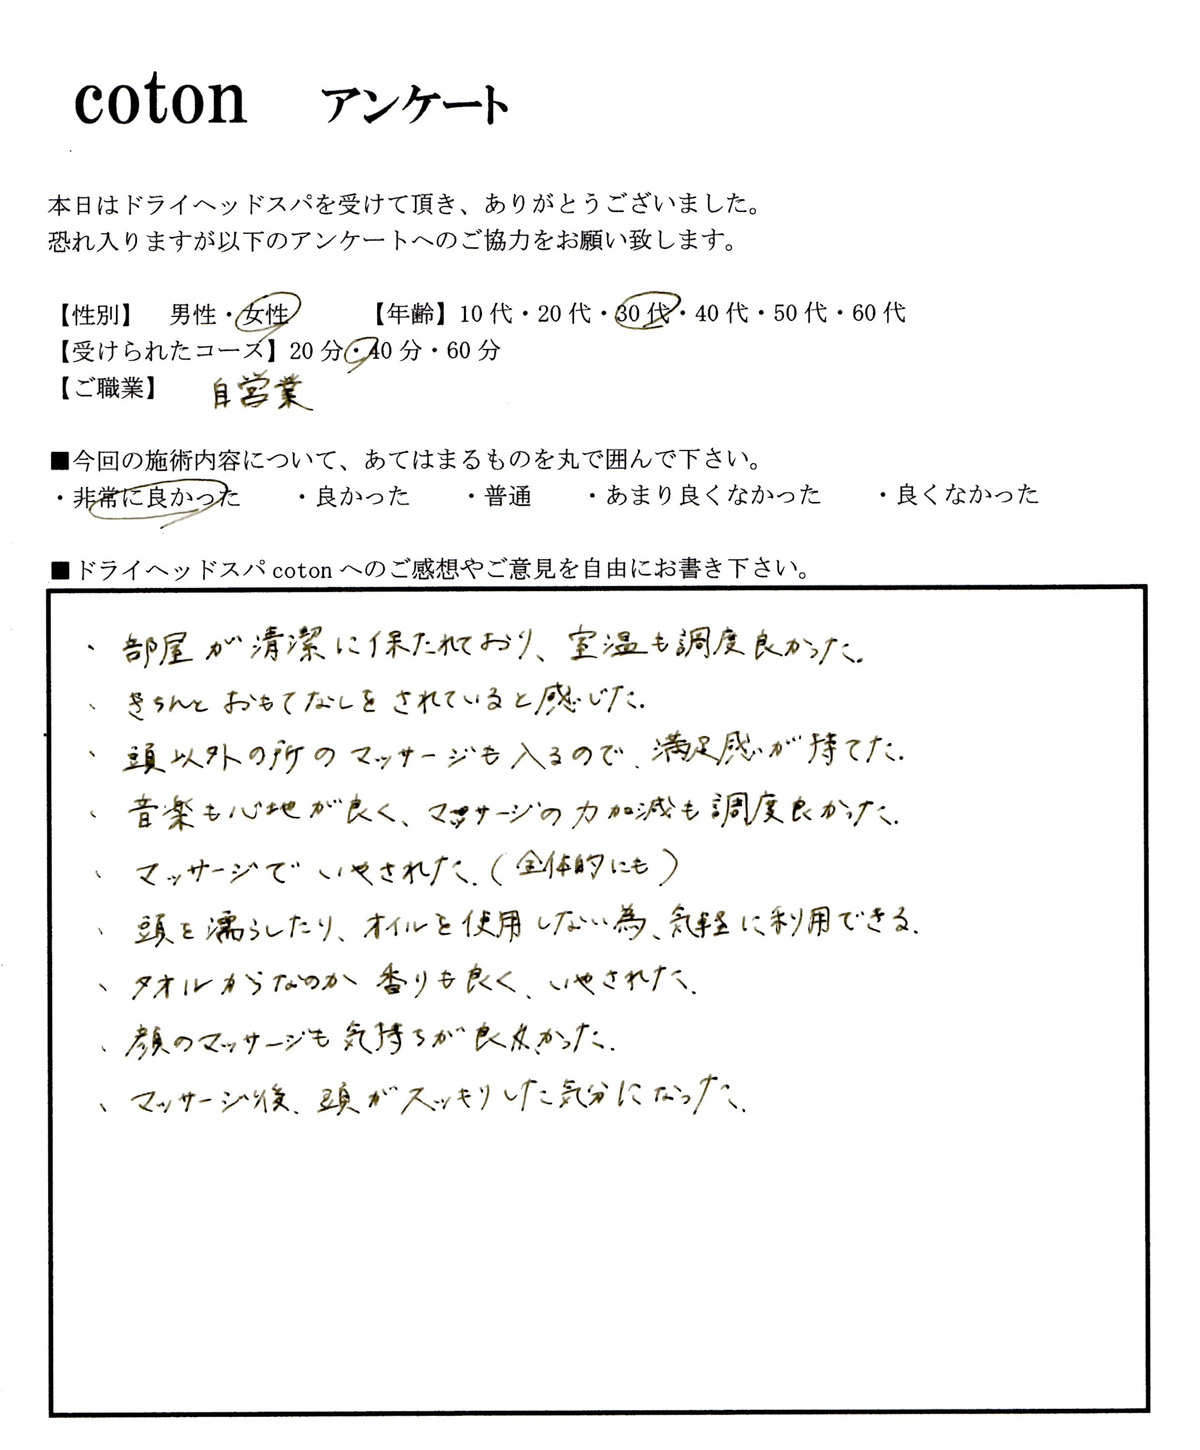 coton アンケート
本日はドライヘッドスパを受けて頂き、ありがとうございました。
恐れ入りますが以下のアンケートへのご協力をお願い致します。
【性別】 男性・女性 【年齢】10代・20代・30代・40代・50代・60代
【受けられたコース】20分・40分・60分
【ご職業】 自営業
■今回の施術内容について、あてはまるものを丸で囲んで下さい。
・非常に良かった ・良かった ・普通 ・あまり良くなかった ・良くなかった
■ドライヘッドスパcotonへのご感想やご意見を自由にお書き下さい。
、部屋が清潔に保たれており、室温も調度良かった。
、きちんとおもてなしをされていると感じた。
、頭以外の所のマッサージも入るので、満足感が持てた。
、音楽も心地が良く、マッサージの力加減も調度良かった。
、マッサージでいやされた。(全体的にも)
、頭を濡らしたり、オイルを使用しない為、気軽に利用できる。
、タオルからなのか香りも良く、いやされた。
、顔のマッサージも気持ちが良かった。
、マッサージ後、頭がスッキリした気分になった。